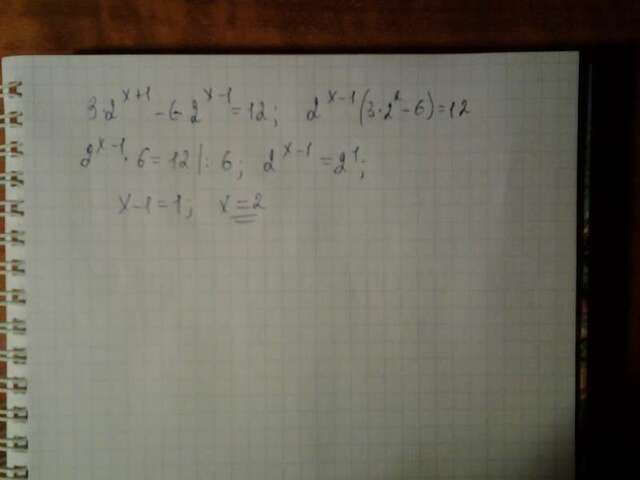 3·2^(x+1) - 6·2^(x-1) = 12; 2^(x-1)(3·2² - 6) = 12
2^(x-1) · 6 = 12 |: 6; 2^(x-1) = 2^1;
x-1 = 1; x = 2